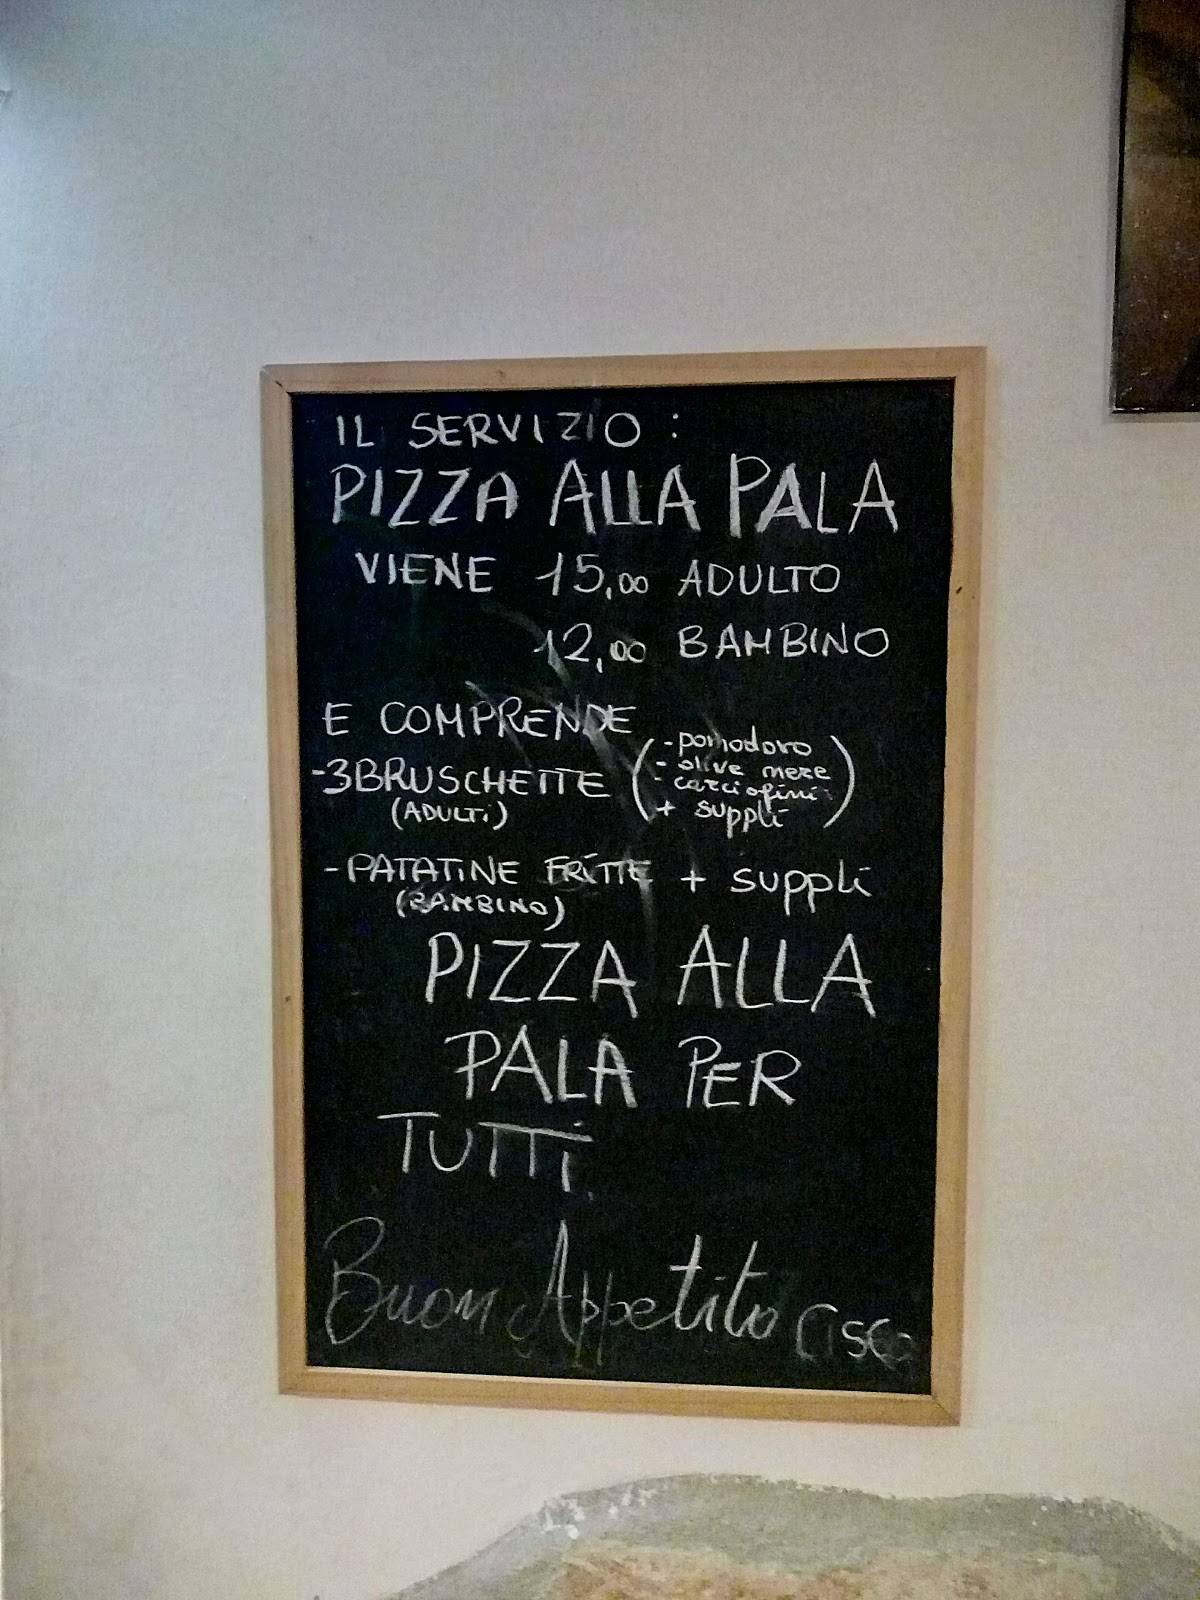 IL SERVIZIO:
PIZZA ALLA PALA
VIENE 15,00 ADULTO
12,00 BAMBINO
E COMPRENDE
-3 BRUSCHETTE
(ADULTI)
(- pomodoro
- olive nere
- carciofini
+ supplì)
-PATATINE FRITTE + supplì
(BAMBINO)
PIZZA ALLA
PALA PER
TUTTI
Buon Appetito Cisco